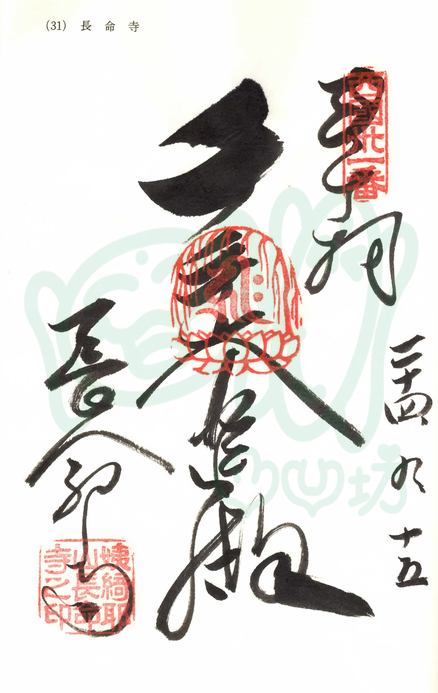 (31) 長命寺
西国卅一番
奉拝
二十四 九 十五
大悲殿
長命寺
姨綺耶
山長命
寺之印